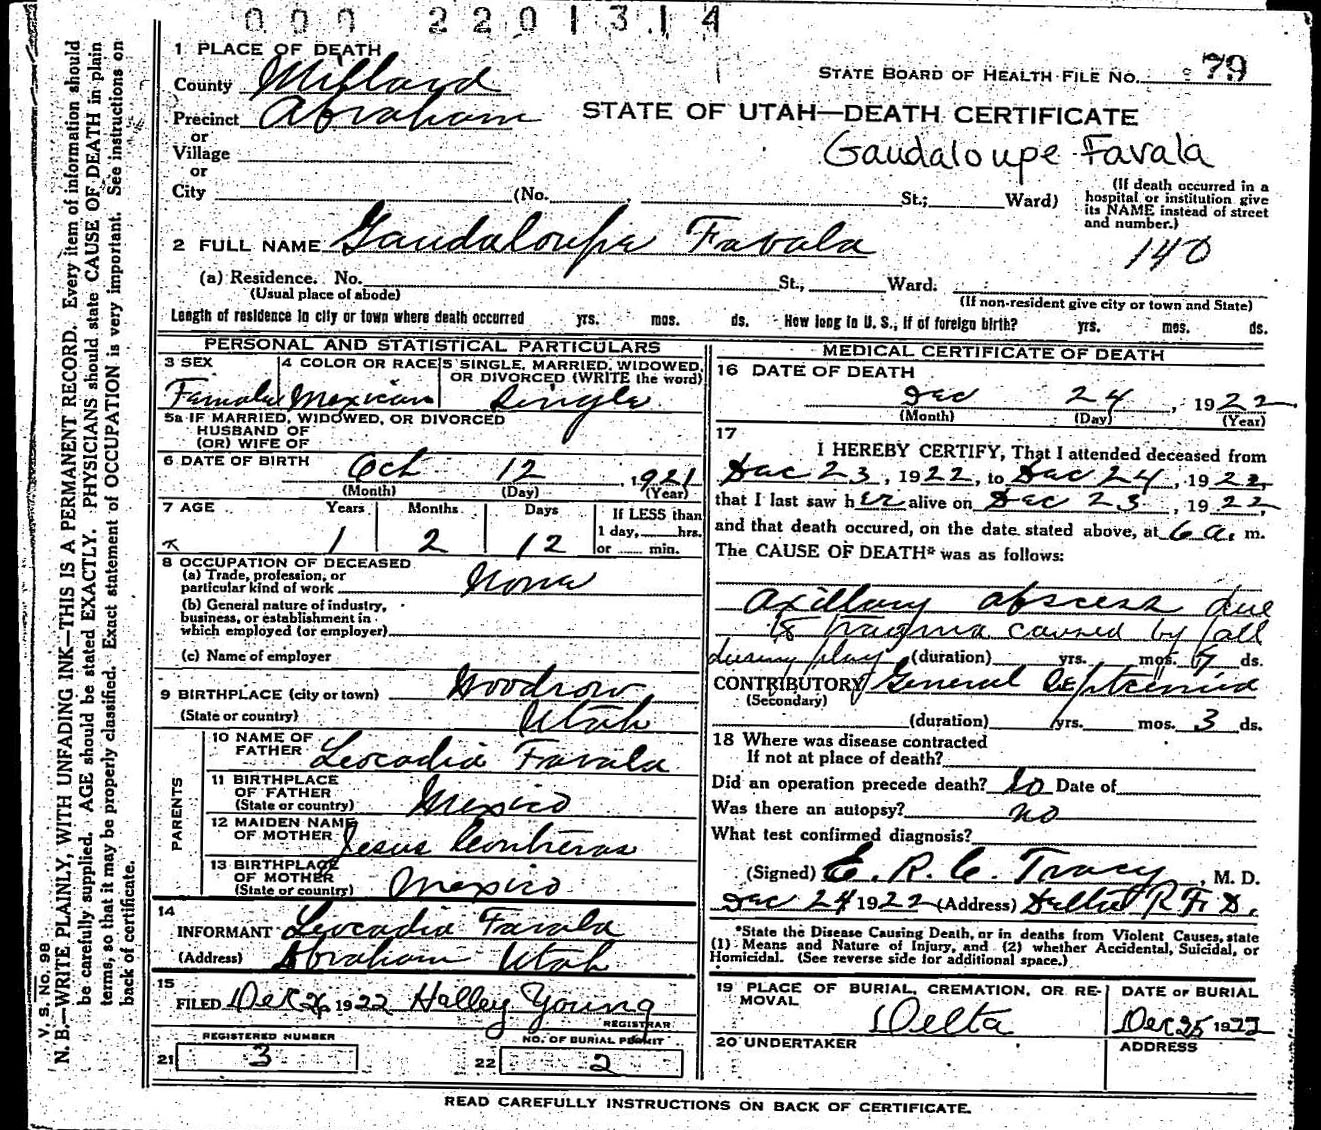 000 2201314
1 PLACE OF DEATH
County Millard
STATE BOARD OF HEALTH FILE NO. 79
Precinct Abraham
STATE OF UTAH—DEATH CERTIFICATE
or
Village
Gaudaloupe Favala
or
City (No. , St.; Ward)
(If death occurred in a
hospital or institution give
its NAME instead of street
and number.)
2 FULL NAME Gaudaloupe Favala
140
(a) Residence. No. St., Ward.
(Usual place of abode) (If non-resident give city or town and State)
Length of residence in city or town where death occurred yrs. mos. ds. How long in U. S., if of foreign birth? yrs. mos. ds.
PERSONAL AND STATISTICAL PARTICULARS
3 SEX 4 COLOR OR RACE 5 SINGLE, MARRIED, WIDOWED,
OR DIVORCED (WRITE the word)
Female Mexican Single
5a IF MARRIED, WIDOWED, OR DIVORCED
HUSBAND OF
(OR) WIFE OF
6 DATE OF BIRTH Oct 12, 1921
(Month) (Day) (Year)
7 AGE Years Months Days If LESS than
1 day, hrs.
1 2 12 or min.
8 OCCUPATION OF DECEASED
(a) Trade, profession, or
particular kind of work None
(b) General nature of industry,
business, or establishment in
which employed (or employer)
(c) Name of employer
9 BIRTHPLACE (city or town) Woodrow,
(State or country) Utah
PARENTS
10 NAME OF
FATHER Leocadia Favala
11 BIRTHPLACE
OF FATHER
(State or country) Mexico
12 MAIDEN NAME
OF MOTHER Jesus Contreras
13 BIRTHPLACE
OF MOTHER
(State or country) Mexico
14
INFORMANT Leocadia Favala
(Address) Abraham Utah
15
FILED Dec 26 1922 Halley Young
REGISTRAR
REGISTERED NUMBER NO. OF BURIAL PERMIT
21 3 22 2
MEDICAL CERTIFICATE OF DEATH
16 DATE OF DEATH
Dec 24, 1922
(Month) (Day) (Year)
17
I HEREBY CERTIFY, That I attended deceased from
Dec 23, 1922, to Dec 24, 1922,
that I last saw her alive on Dec 23, 1922,
and that death occured, on the date stated above, at 6 a. m.
The CAUSE OF DEATH* was as follows:
Axillary abscess due
to trauma caused by fall
during play (duration) yrs. mos. ds.
CONTRIBUTORY General Septicemia
(Secondary)
(duration) yrs. mos. 3 ds.
18 Where was disease contracted
If not at place of death?
Did an operation precede death? no Date of
Was there an autopsy? no
What test confirmed diagnosis?
(Signed) E. R. C. Tracy, M. D.
Dec 24 1922 (Address) Delta R. F. D.
*State the Disease Causing Death, or in deaths from Violent Causes, state
(1) Means and Nature of Injury, and (2) whether Accidental, Suicidal, or
Homicidal. (See reverse side for additional space.)
19 PLACE OF BURIAL, CREMATION, OR RE-
MOVAL
Delta
DATE OF BURIAL
Dec 25 1922
20 UNDERTAKER
ADDRESS
READ CAREFULLY INSTRUCTIONS ON BACK OF CERTIFICATE.
V. S. No. 98
N. B.—WRITE PLAINLY, WITH UNFADING INK—THIS IS A PERMANENT RECORD. Every item of information should
be carefully supplied. AGE should be stated EXACTLY. PHYSICIANS should state CAUSE OF DEATH in plain
terms, so that it may be properly classified. Exact statement of OCCUPATION is very important. See instructions on
back of certificate.